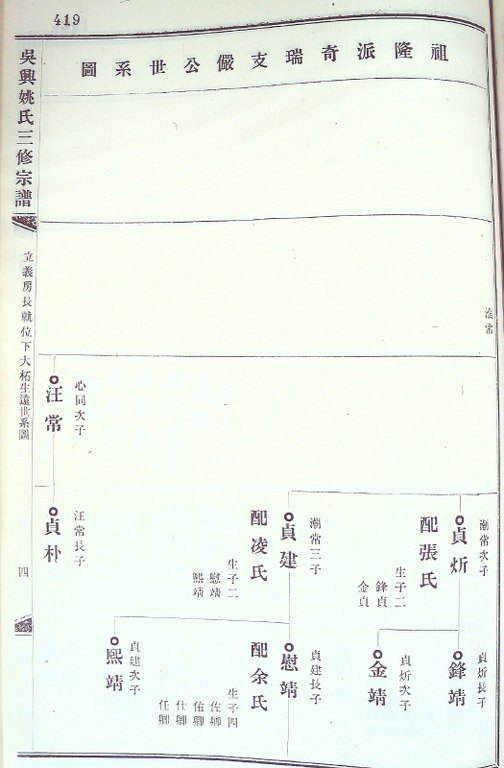 419
祖隆派奇瑞支儼公世系圖
吳興姚氏三修宗譜
立義房長就位下大柘生遠世系圖
四
潮常次子
貞炘
配張氏
生子二
鋒貞
金貞
貞炘長子
鋒靖
貞炘次子
金靖
潮常三子
貞建
配凌氏
生子二
慰靖
熙靖
貞建長子
慰靖
配余氏
生子四
佐卿
佑卿
仕卿
任卿
貞建次子
熙靖
心同次子
汪常
汪常長子
貞朴